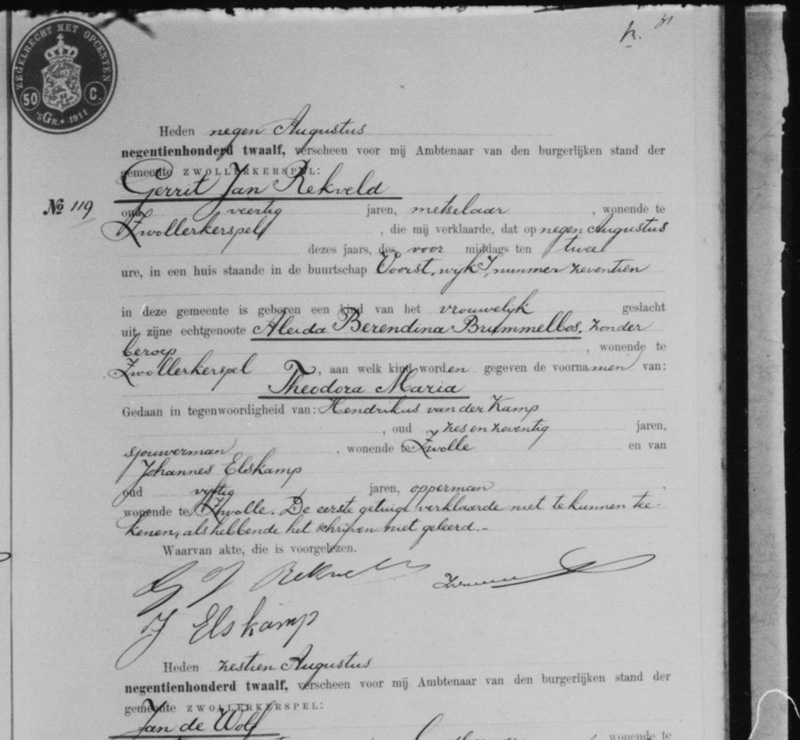 ZEGELRECHT MET OPCENTEN
50 C.
'sGR. 1911
Heden negen Augustus
negentienhonderd twaalf, verscheen voor mij Ambtenaar van den burgerlijken stand der
gemeente ZWOLLERKERSPEL:
Gerrit Jan Rekveld
№ 119
oud veertig jaren, metselaar, wonende te
Zwollerkerspel, die mij verklaarde, dat op negen Augustus
dezes jaars, des voor middags ten twee
ure, in een huis staande in de buurtschap Voorst, wijk J, nummer zeventien
in deze gemeente is geboren een kind van het vrouwelijk geslacht
uit zijne echtgenoote Aleida Berendina Brummelbos, zonder
beroep, wonende te
Zwollerkerspel, aan welk kind worden gegeven de voornamen van:
Theodora Maria
Gedaan in tegenwoordigheid van: Hendrikus van der Kamp
, oud zes en zeventig jaren,
sjouwerman, wonende te Zwolle en van
Johannes Elskamp
oud vijftig jaren, opperman
wonende te Zwolle. De eerste getuige verklaarde niet te kunnen tee-
kenen, als hebbende het schrijven niet geleerd.-
Waarvan akte, die is voorgelezen.
G J Rekveld
J Elskamp
Heden zestien Augustus
negentienhonderd twaalf, verscheen voor mij Ambtenaar van den burgerlijken stand der
gemeente ZWOLLERKERSPEL:
Jan de Wolf
wonende te